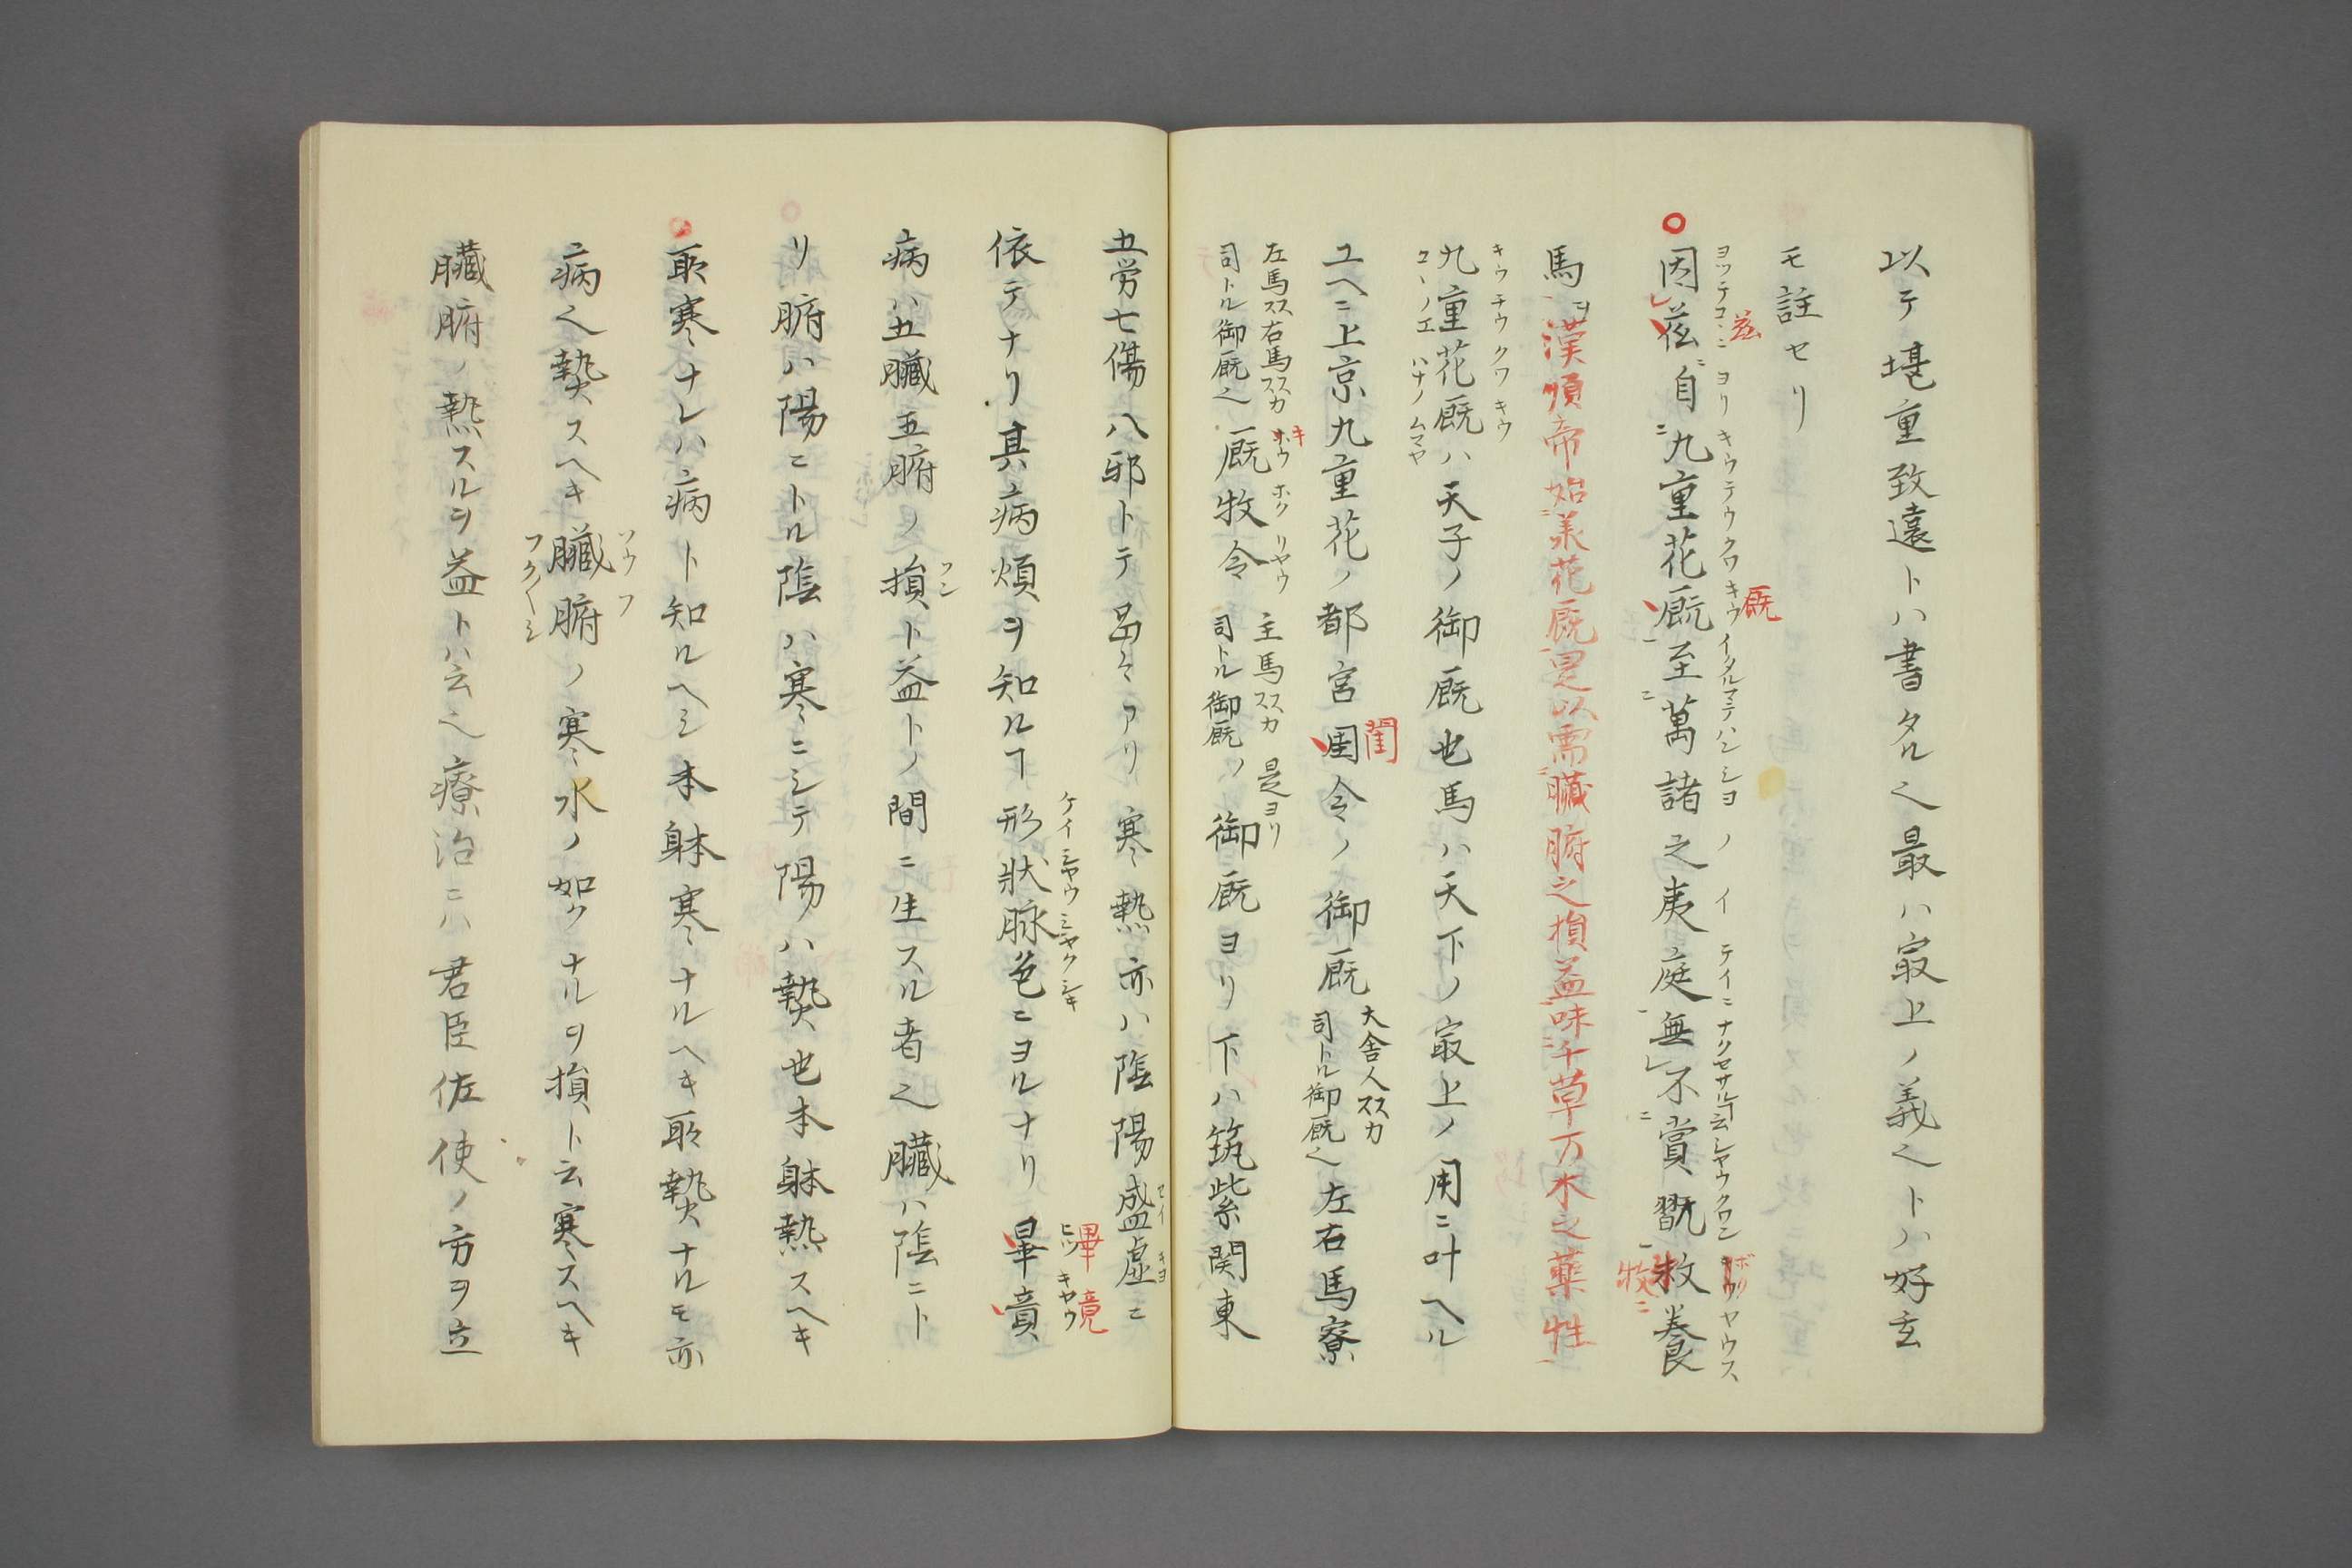 以テ堪重致遠トハ書タル之最ハ㝡上ノ義之トハ好玄
モ註セリ
因茲自九重花厩至萬諸之夷庭無不賞翫敉養
馬漢順帝始美花厩是以需臓腑之損益味千草万木之薬性
九重花厩ハ天子ノ御厩也馬ハ天下ノ㝡上ノ用ニ叶ヘル
ユヘニ上京九重花ノ都宮囯令ノ御厩大舎人ススカ司トル御厩之左右馬寮
左馬スス右馬ススカ司トル御厩之厩牧令主馬ススカ司トル御厩ノ是ヨリ御厩ヨリ下ハ筑紫関東
五労七傷八邪トテ品々アリ寒熱亦ハ陰陽盛虚ニ
依テナリ其病煩ヲ知ルヿ形状脉色ニヨルナリ畢竟
病ハ五臓五腑ノ損ト益トノ間ニ生スル者之臓ハ陰ニト
リ腑ハ陽ニトル陰ハ寒ニシテ陽ハ𤍠也本躰熱スヘキ
耴寒ナレハ病ト知ルヘシ本躰寒ナルヘキ耴𤍠ナルモ亦
病之𤍠スヘキ臓腑ノ寒水ノ如クナルヲ損ト云寒スヘキ
臓腑ノ熱スルヲ益トハ云之療治ニハ君臣佐使ノ方ヲ立